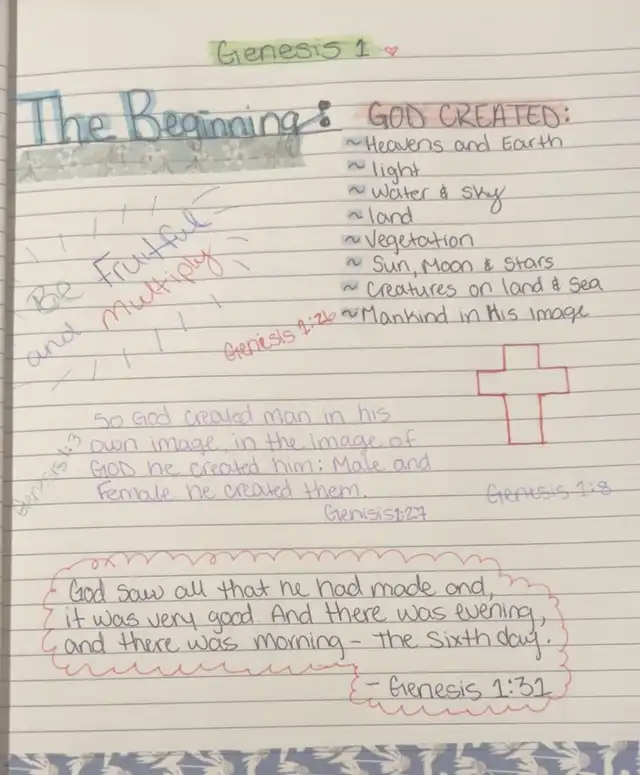 Genesis 1
The Beginning:
GOD CREATED:
~Heavens and Earth
~light
~Water & Sky
~land
~Vegetation
~ Sun, Moon & Stars
~ Creatures on land & Sea
~Mankind in His Image
Be Fruitful
and Multiply
Genesis 1:26
So God created man in his
own image, in the image of
GOD he created him: Male and
Female he created them.
Genisis1:27
Genesis 1:3
Genesis 1:8
God saw all that he had made and,
it was very good. And there was evening,
and there was morning – the Sixth day.
– Genesis 1:31